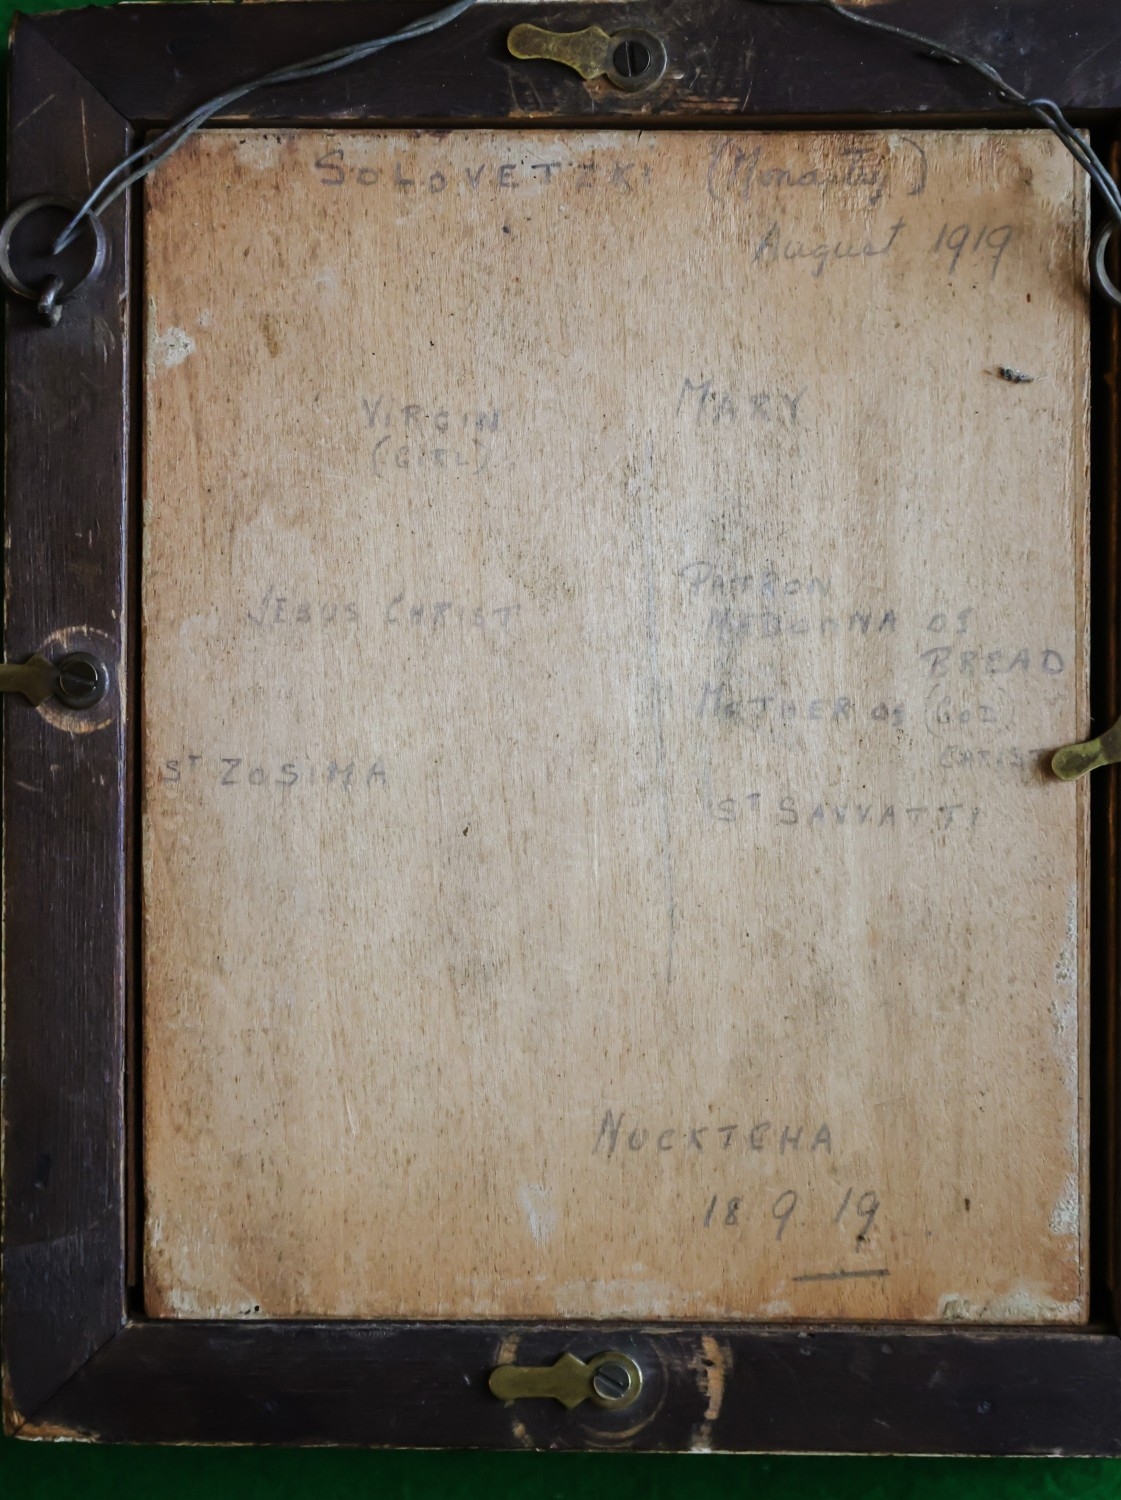 SOLOVETZKI (Monastry)
August 1919
VIRGIN MARY
(GIRL)
PATRON
JESUS CHRIST MEDONNA OF
BREAD
MOTHER OF (GOD)
CHRIST
ST ZOSIMA ST SAVVATTI
NUCKTCHA
18 9 19